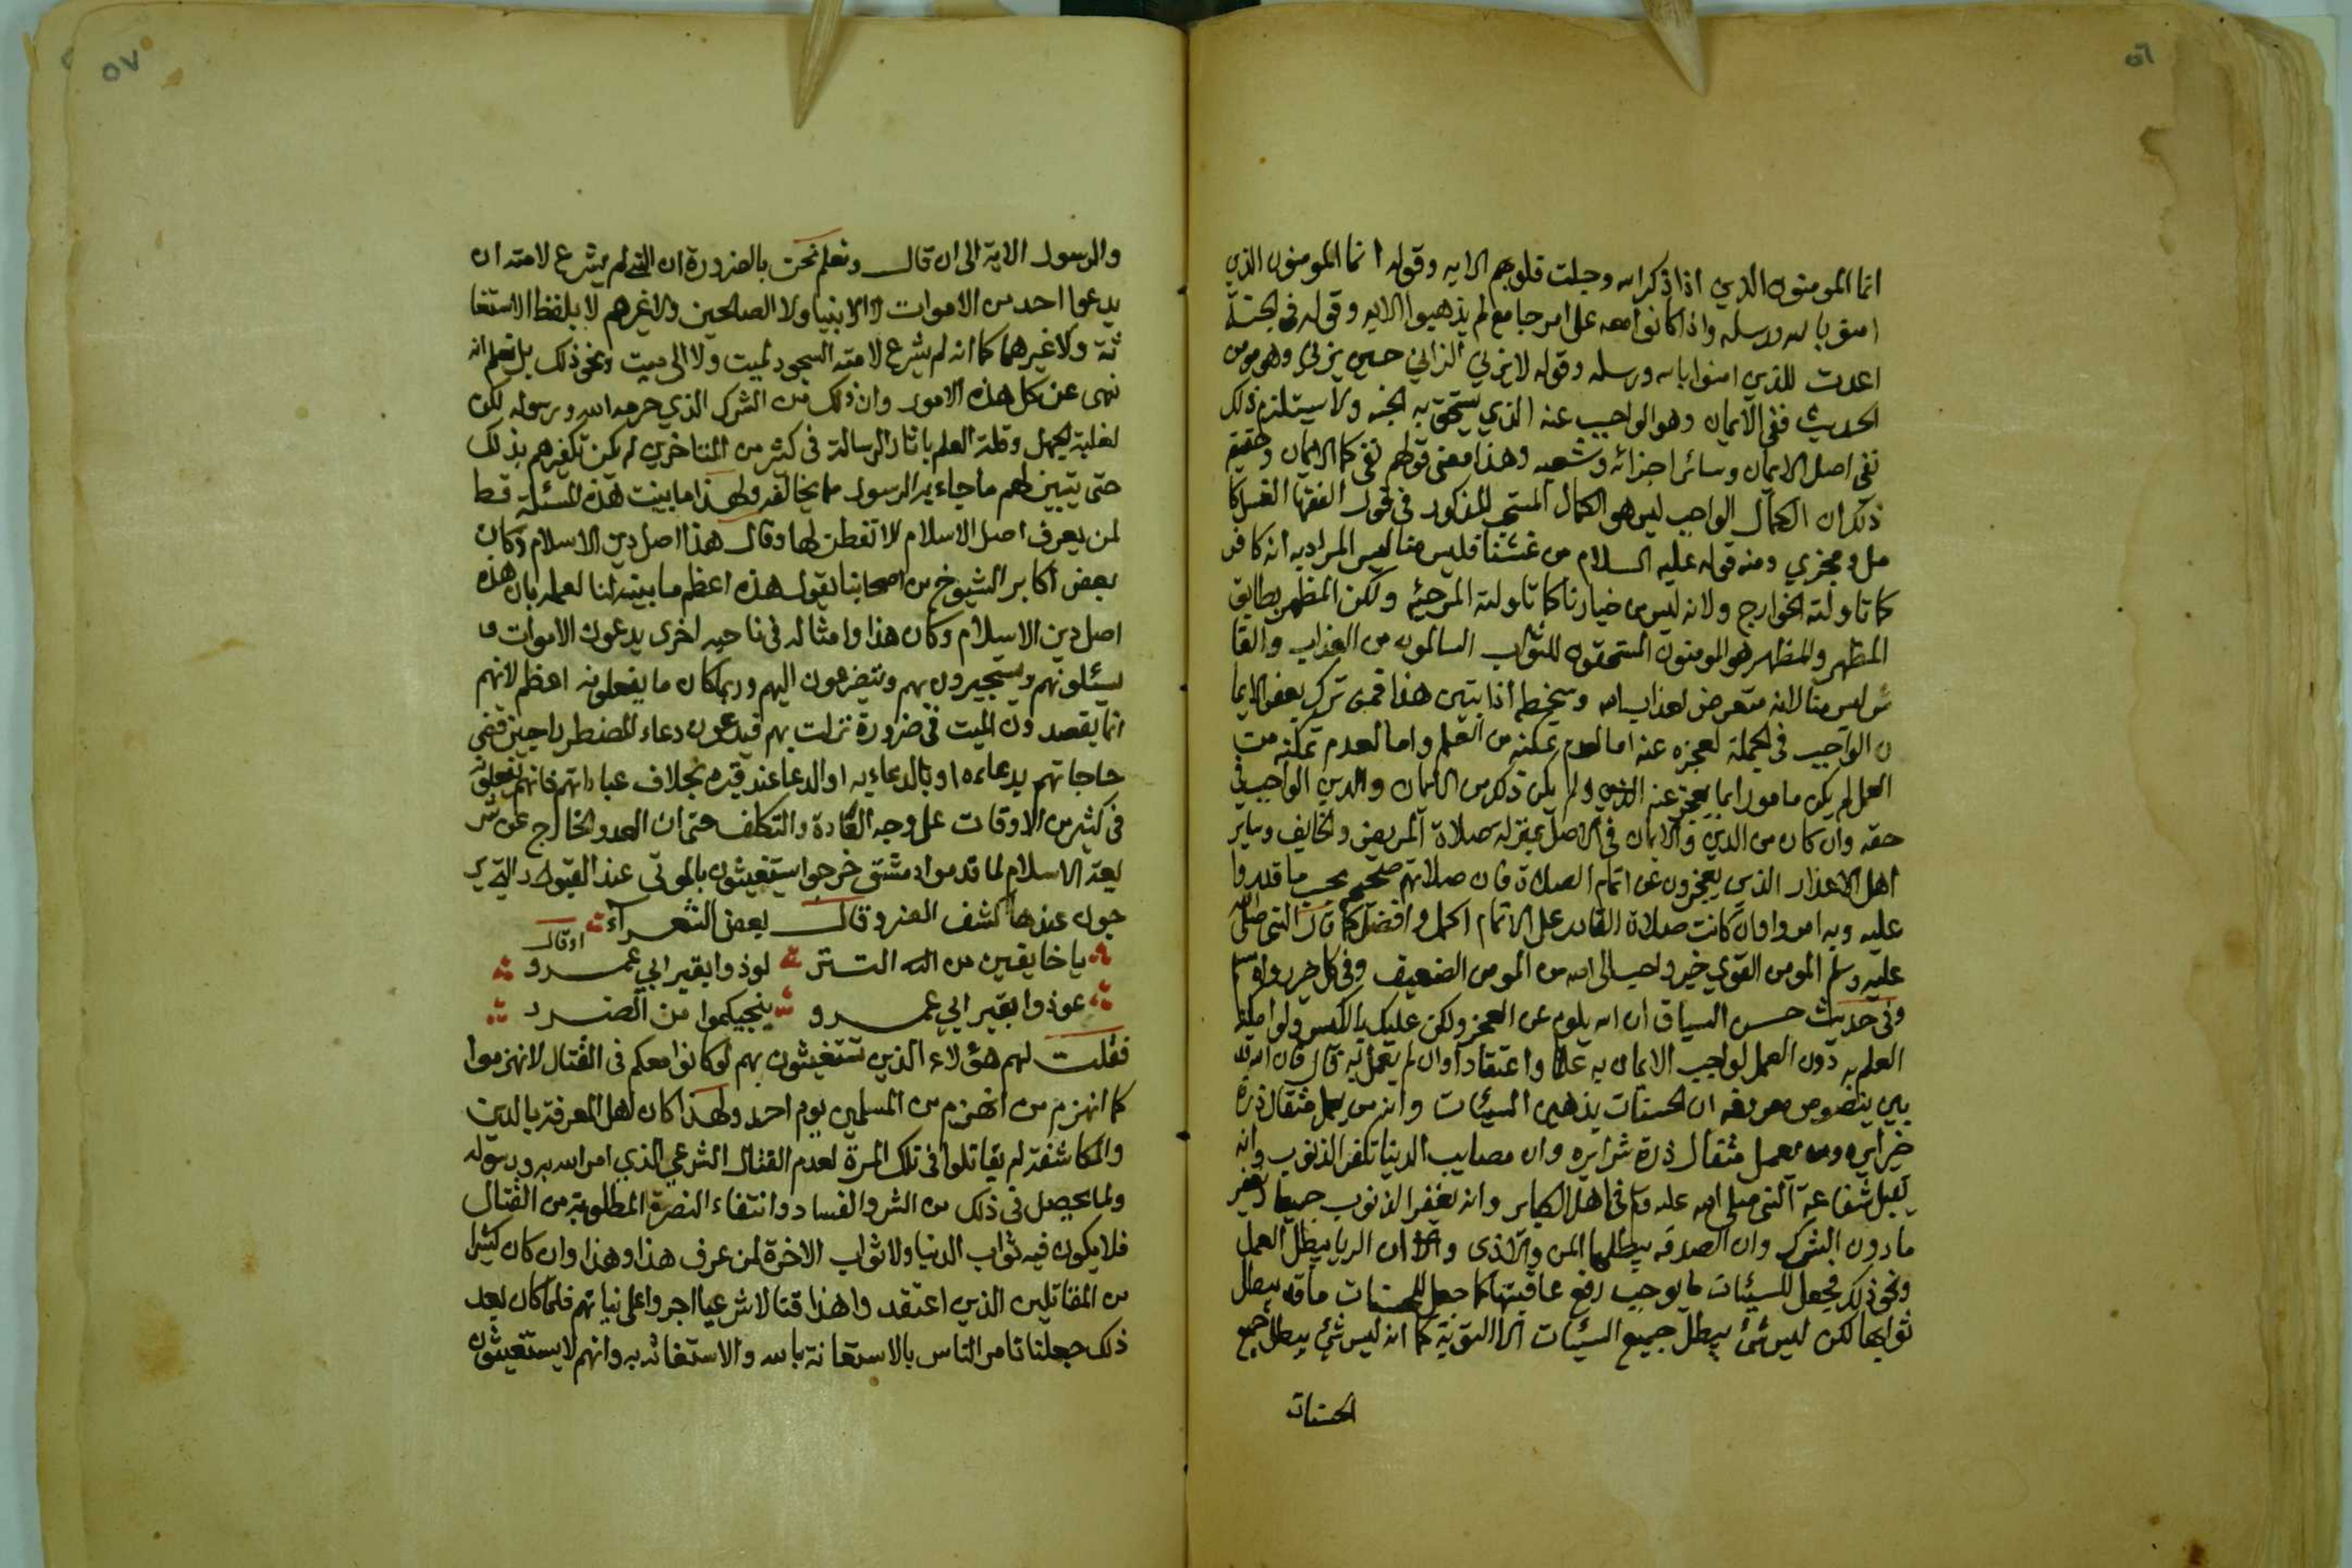 ٥٦
انما المومنون الذين اذا ذكر الله وجلت قلوبهم الايه وقوله انما المومنون الذين
امنو بالله ورسله واذا كانوا معه على امر جامع لم يذهبوا الايه وقوله في الجنة
اعدت للذين امنوا بالله ورسله وقوله لا يزني الزاني حين يزني وهو مومن
الحديث فنفى الايمان وهو الواجب عنه الذي يستحق به الجنه ولا يستلزم ذلك
نفي اصل الايمان وسائر اجزائه وشعبه وهذا معنى قولهم نفي كمال الايمان وحقيقة
ذلك ان الكمال الواجب ليس هو الكمال المستحب المذكور في قول الفقها الغسل كا
مل ومجزي ومنه قوله عليه السلام من غشنا فليس منا ليس المراد به انه كافر
كما تاولته الخوارج ولا انه ليس من خيارنا كما تاولته المرجئه ولكن المظهر يطابق
المظهر والمظهر هو المومنون المستحقون للثواب السالمون من العذاب والغا
ش ليس منا لانه متعرض لعذاب الله وسخطه اذا تبين هذا فمن ترك بعض الايما
ن الواجب في الجملة لعجزه عنه اما لعدم تمكنه من العلم واما لعدم تمكنه من
العمل لم يكن مامورا بما يعجز عنه ولم يكن ذلك من الايمان والدين الواجب في
حقه وان كان من الدين والايمان في الاصل بمنزلة صلاة المريض والخايف وساير
اهل الاعذار الذين يعجزون عن اتمام الصلاة فان صلاتهم صحيحه بحسب ما قدروا
عليه وبه امروا وان كانت صلاة القادر على الاتمام اكمل وافضل كما قال النبي صلى الله
عليه وسلم المومن القوي خير واحب الى الله من المومن الضعيف وفي كل خير رواه مسلم
وفي حديث حسن السياق ان الله يلوم على العجز ولكن عليك بالكيس ولو امكنه
العلم به دون العمل لوجب الايمان به علما واعتقادا وان لم يعمل به قال فان الله
بين بنصوص معروفه ان الحسنات يذهبن السيئات وان من يعمل مثقال ذرة
خيرا يره ومن يعمل مثقال ذرة شرا يره وان مصايب الدنيا تكفر الذنوب وانه
يقبل شفاعة النبي صلى الله عليه وسلم في اهل الكباير وانه يغفر الذنوب جميعا ويغفر
ما دون الشرك وان الصدقه يبطلها المن والاذى وان الريا يبطل العمل
ونحو ذلك فجعل للسيئات ما يوجب رفع عاقبتها كما جعل للحسنات ما قد يبطل
ثوابها لكن ليس شئ يبطل جميع السيئات الا التوبة كما انه ليس شئ يبطل جميع
الحسنات
٥٧
والرسول الاية الى ان قال ونعلم نحن بالضرورة ان النبي لم يشرع لامته ان
يدعوا احد من الاموات لا الانبيا ولا الصالحين ولا غيرهم لا بلفظ الاستغا
ثة ولا غيرهما كما انه لم يشرع لامته السجود لميت ولا الى ميت ونحو ذلك بل نعلم انه
نهى عن كل هذه الامور وان ذلك من الشرك الذي حرمه الله ورسوله لكن
لغلبة الجهل وقلة العلم باثار الرسالة في كثير من المتاخرين لم يكن تكفيرهم بذلك
حتى يتبين لهم ما جاء به الرسول مما يخالفه ولهذا ما بينت هذه المسئلة قط
لمن يعرف اصل الاسلام الا تفطن لها وقال هذا اصل دين الاسلام وكان
بعض اكابر الشيوخ من اصحابنا يقول هذه اعظم ما بينته لنا لعلمه بان هذه
اصل دين الاسلام وكان هذا وامثاله في ناحيه اخرى يدعون الاموات و
يسئلونهم ويستجيرون بهم ويتضرعون اليهم وربما كان ما يفعلونه اعظم لانهم
انما يقصدون الميت في ضرورة نزلت بهم فيدعون دعاء المضطر راجين قضى
حاجاتهم بدعائه او بالدعاء به او الدعا عند قبره بخلاف عباداتهم فانهم يفعلونه
في كثير من الاوقات على وجه العادة والتكلف حتى ان العدو الخارج عن شر
يعة الاسلام لما قدموا دمشق خرجوا يستغيثون بالموتى عند القبور التي ير
جون عندها كشف الضر وقال بعض الشعراء
يا خايفين من الله التتر لوذوا بقبر ابي عمرو
او قال
عوذوا بقبر ابي عمرو ينجيكموا من الضرر
فقلت لهم هؤلاء الذين تستغيثون بهم لو كانوا معكم في القتال لانهزموا
كما انهزم من انهزم من المسلمين يوم احد ولهذا كان اهل المعرفة بالدين
والمكاشفة لم يقاتلوا في تلك المرة لعدم القتال الشرعي الذي امر الله به ورسوله
ولما يحصل في ذلك من الشر والفساد وانتفاء النصرة المطلوبة من القتال
فلا يكون فيه ثواب الدنيا ولا ثواب الاخرة لمن عرف هذا وهذا وان كان كثيرا
من المقاتلين الذين اعتقدوا هذا قتالا شرعيا اجروا على نياتهم فلما كان بعد
ذلك جعلنا نامر الناس بالاستعانة بالله والاستغاثه به وانهم لا يستغيثون